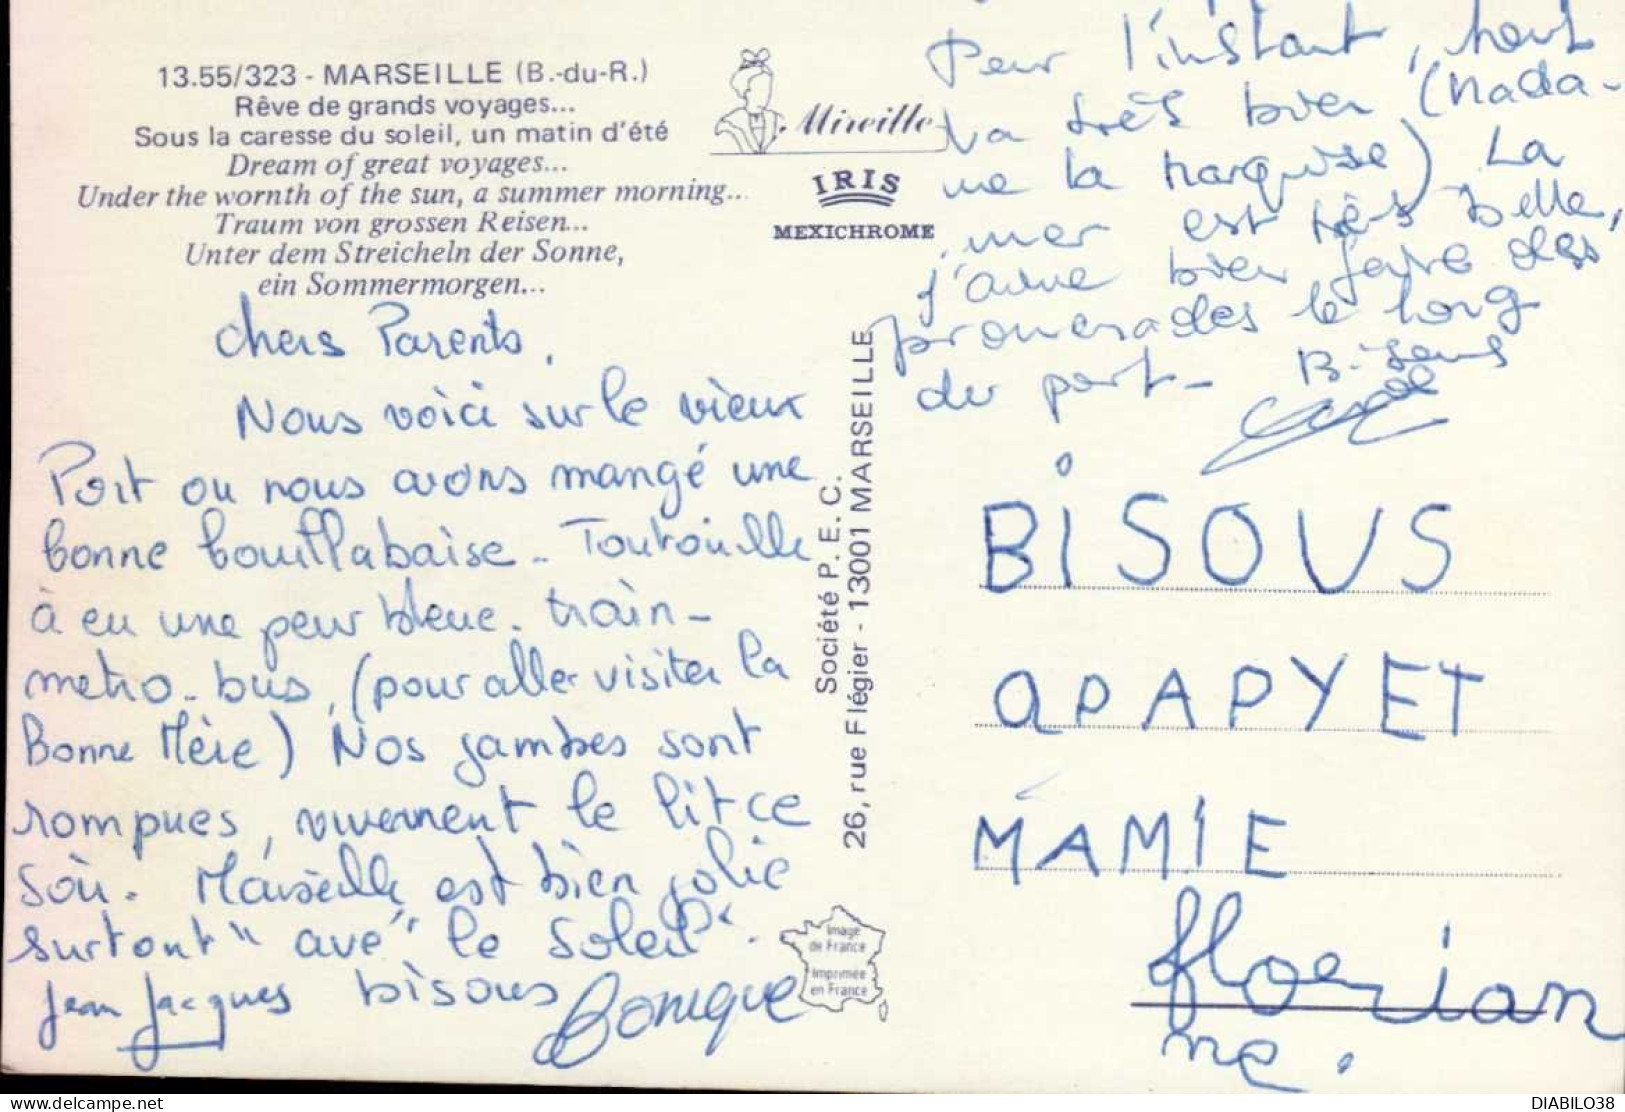 13.55/323 - MARSEILLE (B.-du-R.)
Rêve de grands voyages...
Sous la caresse du soleil, un matin d'été
Dream of great voyages...
Under the wornth of the sun, a summer morning...
Traum von grossen Reisen...
Unter dem Streicheln der Sonne,
ein Sommermorgen...
Mireille
IRIS
MEXICHROME
Chers Parents,
Nous voici sur le vieux
Port ou nous avons mangé une
bonne bouillabaise.. Toutouille
à eu une peur bleue. train-
metro-bus, (pour aller visiter la
Bonne Mère) Nos jambes sont
rompues, vivement le lit ce
soir. Marseille est bien jolie
surtout "avé" le soleil.
Jean Jacques bisous
Société P. E. C.
26, rue Flégier - 13001 MARSEILLE
Image
de France
Imprimée
en France
Pour l'instant, tout
va très bien (Mada-
me la Marquise) La
mer est très belle,
j'aime bien faire des
promenades le long
du port - Bisous
BISOUS
A PAPY ET
MAMIE
florian
ne.
DIABILO38